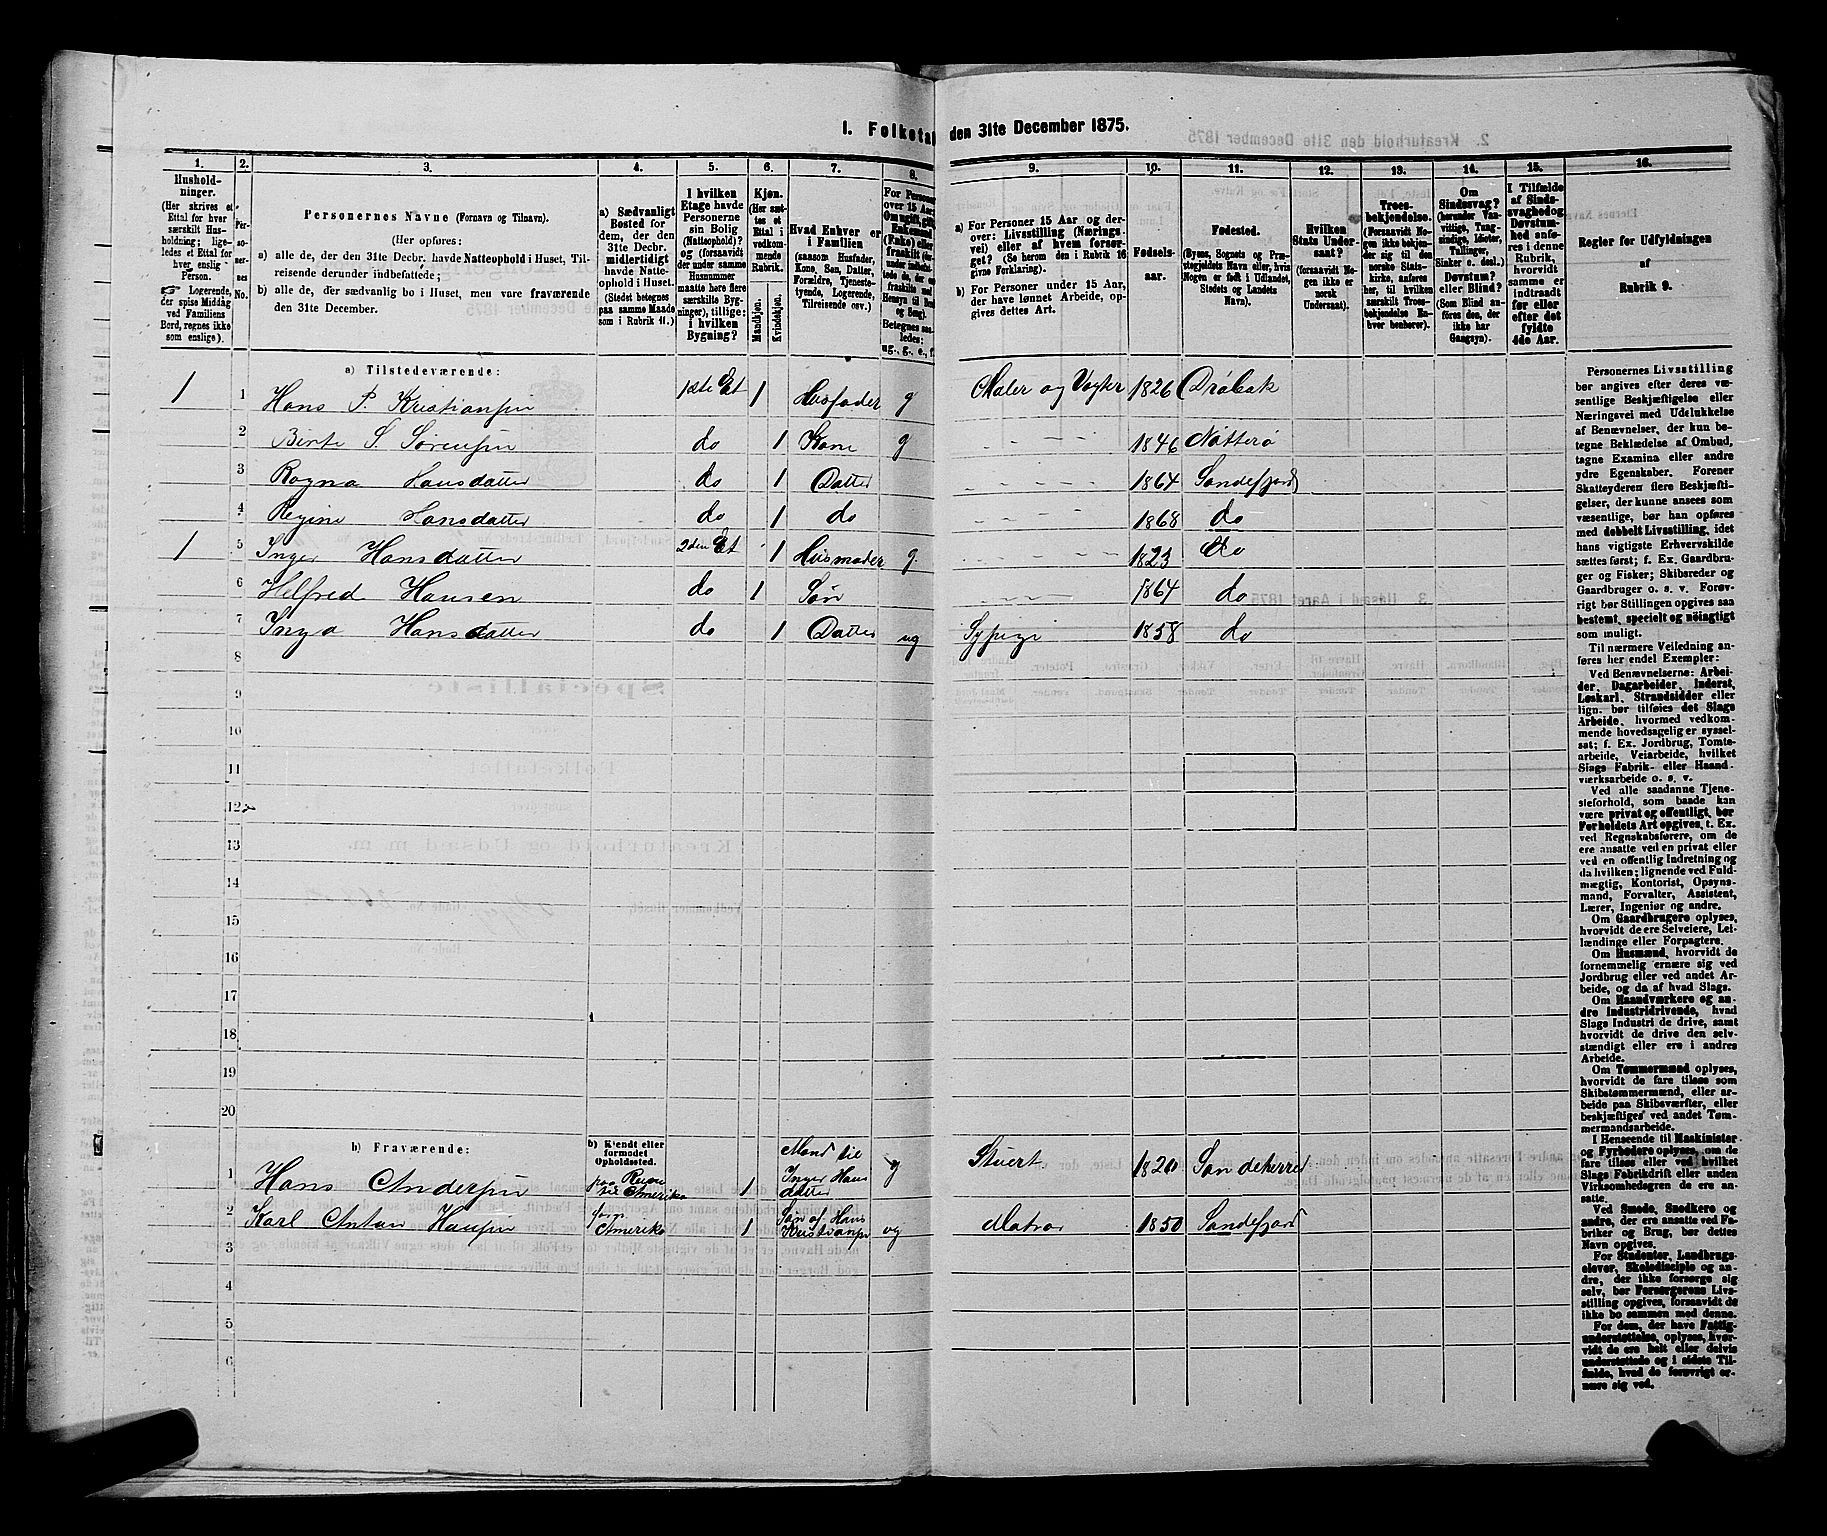 I. Folketal den 31te December 1875.
1. 2. 3. 4. 5. 6. 7. 8. 9. 10. 11. 12. 13. 14. 15. 16.
Hushold-
ninger.
(Her skrives et
Ettal for hver
særskilt Hus-
holdning; lige-
ledes et Ettal for
hver enslig
Person.
Logerende,
der spise Middag
ved Familiens
Bord, regnes ikke
som enslige).
Per-
so-
ner-
nes
No.
Personernes Navne (Fornavn og Tilnavn).
(Her opføres:
a) alle de, der den 31te Decbr. havde Natteophold i Huset, Til-
reisende derunder indbefattede;
b) alle de, der sædvanlig bo i Huset, men vare fraværende
den 31te December.
a) Sædvanligt
Bosted for
dem, der den
31te Decbr.
midlertidigt
havde Natte-
ophold i Huset.
(Stedet betegnes
paa samme Maade
som i Rubrik 11.)
I hvilken
Etage havde
Personerne
sin Bolig
(Natteophold)?
og (forsaavidt
der under samme
Husnummer
maatte høre flere
særskilte Byg-
ninger), tillige:
i hvilken
Bygning?
Kjøn.
(Her sæt-
tes et
Ettal i
vedkom-
mende
Rubrik.
Mandkjøn.
Kvindekjøn.
Hvad Enhver er
i Familien
(saasom Husfader,
Kone, Søn, Datter,
Forældre, Tjeneste-
tyende, Logerende,
Tilreisende osv.)
For Personer
over 15 Aar:
Betegnes saa-
ledes:
ug., g., e., f.
a) For Personer 15 Aar og der-
over: Livsstilling (Nærings-
vei) eller af hvem forsør-
get? (Se herom den i Rubrik 16
givne Forklaring).
b) For Personer under 15 Aar,
der have lønnet Arbeide, op-
gives dettes Art.
Fødsels-
aar.
Fødested.
(Byens, Sognets og Præ-
stegjeldets Navn eller, hvis
Nogen er født i Udlandet,
Stedets og Landets
Navn).
Hvilken
Stats Under-
saat?
(forsaavidt No-
gen ikke er
norsk
Undersaat).
Troes-
bekjendelse.
(Forsaavidt No-
gen ikke bekjen-
der sig til den
norske Stats-
kirke, anføres
her, til hvilken
særskilt Troes-
bekjendelse En-
hver henhører).
Om
Sindssvag?
(herunder Van-
vittige, Tung-
sindige, Idioter,
Tullinger,
Sinker o. desl.)
Døvstum?
eller Blind?
(Som Blind an-
føres den, der
ikke har
Gangsyn).
I Tilfælde
af Sinds-
svaghed og
Døvstum-
hed anfø-
res i denne
Rubrik,
hvorvidt
samme er
indtraadt
før eller
efter det
fyldte
4de Aar.
Regler for Udfyldningen
af
Rubrik 9.
a) Tilstedeværende:
1 1 Hans P. Kristiansen 1ste Et 1 Husfader g Maler og Vægter 1826 Drøbak
2 Birte S. Sørensen do 1 Kone g 1846 Nøtterø
3 Ragna Hansdatter do 1 Datter 1864 Sandefjord
4 Regine Hansdatter do 1 do 1868 do
1 5 Inger Hansdatter 2den Et 1 Husmoder g. 1823 do
6 Helfred Hansen do 1 Søn 1864 do
7 Inga Hansdatter do 1 Datter ug Sypige 1858 do
8
9
10
11
12
13
14
15
16
17
18
19
20
b) Fraværende:
b) Kjendt eller
formodet
Opholdssted.
1 Hans Andersen paa Reise til Amerika 1 Mand til Inger Hansdatter g Stuert 1820 Sandeherred
2 Karl Anton Hansen Amerika 1 Søn af Hans Kristiansen ug Matros 1850 Sandefjord
3
4
5
6
Personernes Livsstilling
bør angives efter deres væ-
sentlige Beskjæftigelse eller
Næringsvei med Udelukkelse
af Benævnelser, der kun be-
tegne Beklædelse af Ombud,
tagne Examina eller andre
ydre Egenskaber. Forener
Skatteyderen flere Beskjæfti-
gelser, der kunne ansees som
væsentlige, bør han opføres
med dobbelt Livsstilling, idet
hans vigtigste Erhvervskilde
sættes først; f. Ex. Gaardbru-
ger og Fisker; Skibsreder og
Gaardbruger o. s. v. Forøv-
rigt bør Stillingen opgives saa
bestemt, specielt og nøiagtigt
som muligt.
Til nærmere Veiledning an-
føres her endel Exempler:
Ved Benævnelserne: Arbei-
der, Dagarbeider, Inderst,
Løskarl, Strandsidder eller
lign. bør tilføies det Slags
Arbeide, hvormed vedkom-
mende hovedsagelig er syssel-
sat; f. Ex. Jordbrug, Tomte-
arbeide, Veiarbeide, hvilket
Slags Fabrik- eller Haand-
værksarbeide o. s. v.
Ved alle saadanne Tjene-
steforhold, som baade kan
være privat og offentligt, bør
Forholdets Art opgives, t. Ex.
ved Regnskabsførere, om de
ere ansatte ved en privat eller
ved en offentlig Indretning og
da hvilken; lignende ved Fuld-
mægtig, Kontorist, Opsyns-
mand, Forvalter, Assistent,
Lærer, Ingeniør og andre.
Om Gaardbrugere oplyses,
hvorvidt de ere Selveiere, Lei-
lændinge eller Forpagtere.
Om Husmænd, hvorvidt de
fornemmelig ernære sig ved
Jordbrug eller ved andet Ar-
beide, og da af hvad Slags.
Om Haandværkere og an-
dre Industridrivende, hvad
Slags Industri de drive, samt
hvorvidt de drive den selv-
stændigt eller ere i andres
Arbeide.
Om Tømmermænd oplyses,
hvorvidt de fare tilsøs som
Skibstømmermænd, eller ar-
beide paa Skibsværfter, eller
beskjæftiges ved andet Tøm-
mermandsarbeide.
I Henseende til Maskinister
og Fyrbødere oplyses, om de
fare tilsøs eller ved hvilket
Slags Fabrikdrift eller anden
Virksomhedsgren de ere an-
satte.
Ved Smede, Snedkere og
andre, der ere ansatte ved Fa-
briker og Brug, bør dettes
Navn opgives.
For Studenter, Landbrugs-
elever, Skoledisciple og an-
dre, der ikke forsørge sig
selv, bør Forsørgerens Livs-
stilling opgives, forsaavidt de
ikke bo sammen med denne.
For dem, der have Fattig-
understøttelse, oplyses, hvor-
vidt de ere helt eller delvis
understøttede og i sidste Til-
fælde, hvad de forøvrigt er-
nære sig ved.